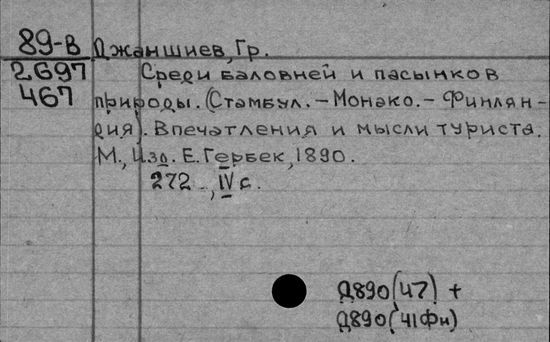 89-В Джаншиев, Гр.
2697 Среди баловней и пасынков
467 природы. (Стамбул. - Монако. - Финлян-
дия). Впечатления и мысли туриста.
М., Изд. Е. Гербек, 1890.
272 ., IV с.
Д890(47) +
Д890(41Фи)